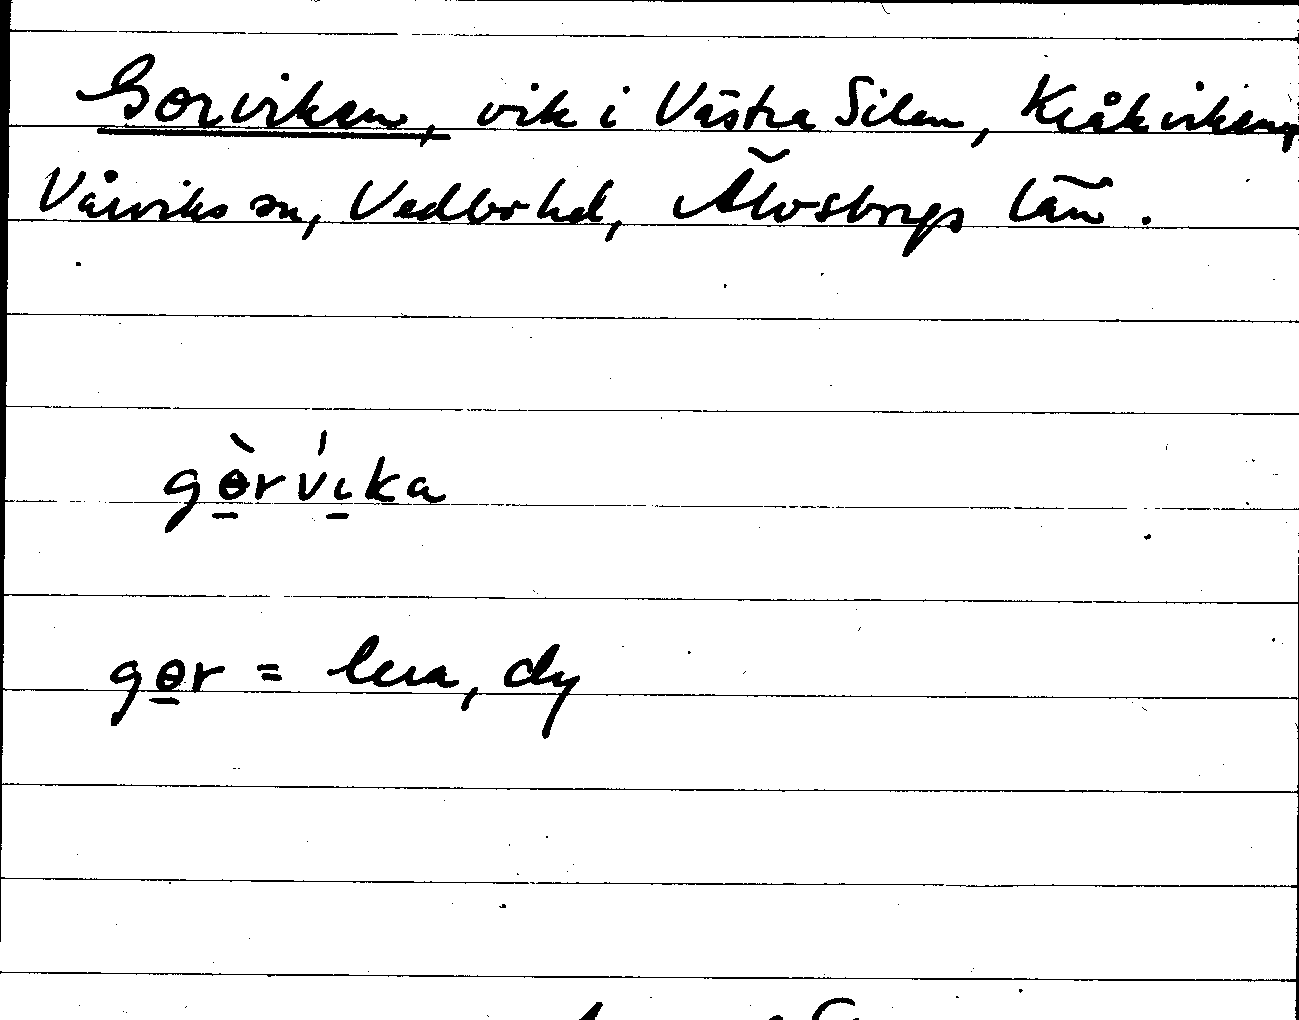 Gorviken, vik i Västra Silen, Kråkviken,
Vårviks sn, Vedbo hd, Älvsborgs län.
gɵ̀rvı̍ka
gɵr = lera, dy